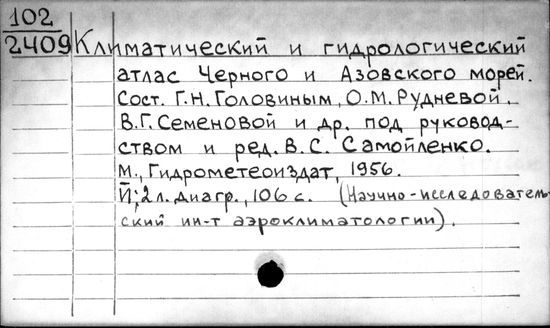 102
2409 Климатический и гидрологический
атлас Черного и Азовского морей.
Сост. Г.Н. Головиным, О.М. Рудневой,
В.Г. Семеновой и др. под руковод-
ством и ред. В.С. Самойленко.
М., Гидрометеоиздат, 1956.
II; 2 л. диагр., 106 с. (Научно-исследователь-
ский ин-т аэроклиматологии).